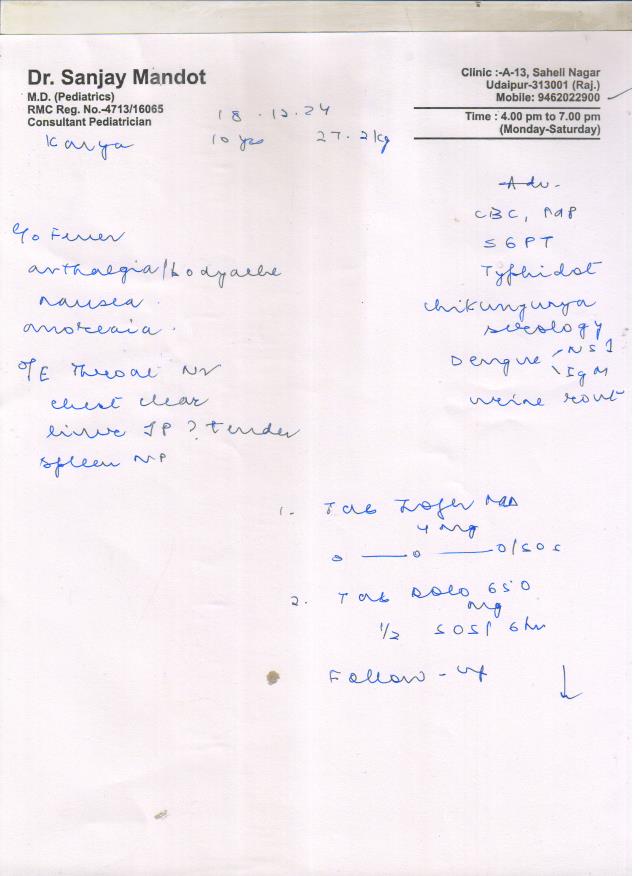 Dr. Sanjay Mandot
M.D. (Pediatrics)
RMC Reg. No.-4713/16065
Consultant Pediatrician
Clinic :-A-13, Saheli Nagar
Udaipur-313001 (Raj.)
Mobile: 9462022900
Time : 4.00 pm to 7.00 pm
(Monday-Saturday)
18.12.24
Kavya 10 yrs 27.2kg
c/o Fever
arthalgia/bodyache
nausea.
anorexia.
O/E Throat
chest clear
liver JP ? tender
spleen NP
Adv.
CBC,
SGPT
Typhidot
chikungunya
serology
Dengue NS1
IgM
urine rout
1. Tab Zofer
4 mg
0 — 0 — 0/SOS
2. Tab Dolo 650
mg
1/2 SOS/ 6hr
Follow-up ↓